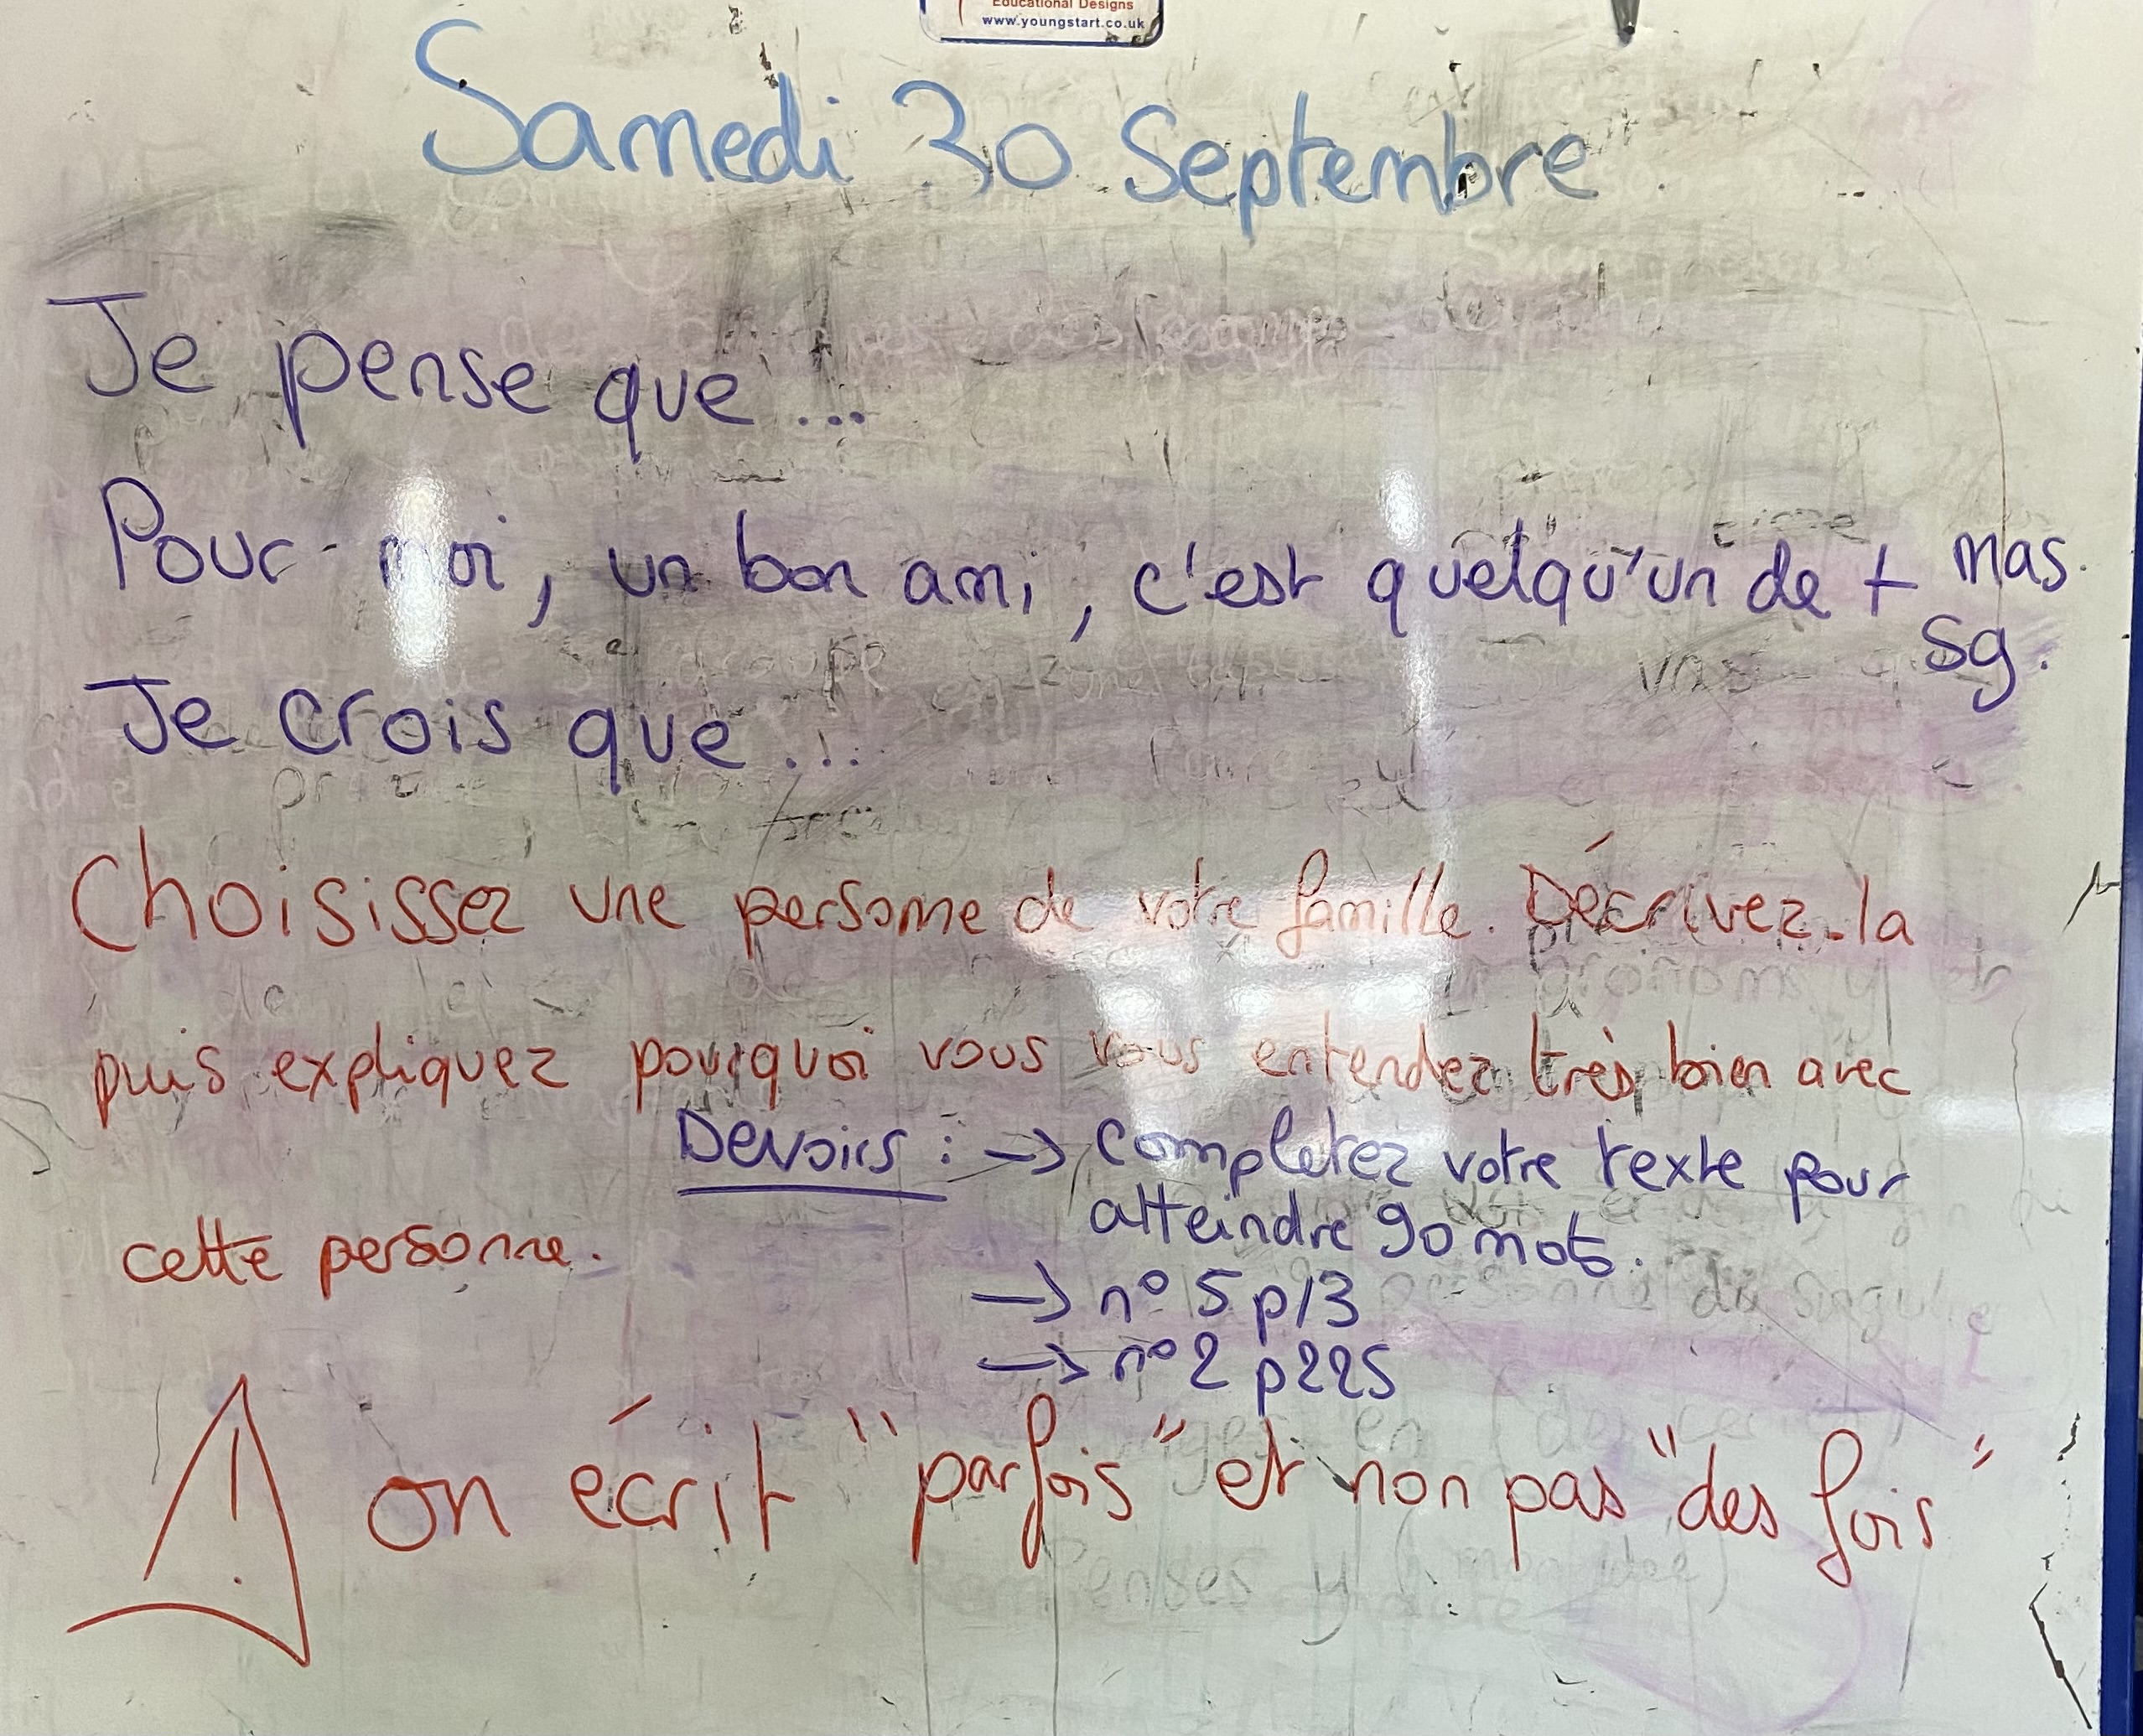 Educational Designs
www.youngstart.co.uk
Samedi 30 Septembre
Je pense que ...
Pour moi, un bon ami, c'est quelqu'un de + mas.
sg.
Je crois que ...
Choisissez une personne de votre famille. Décrivez-la
puis expliquez pourquoi vous vous entendez très bien avec
cette personne.
Devoirs : → completez votre texte pour
atteindre 90 mots.
→ n° 5 p13
→ n° 2 p225
! on écrit "parfois" et non pas "des fois"